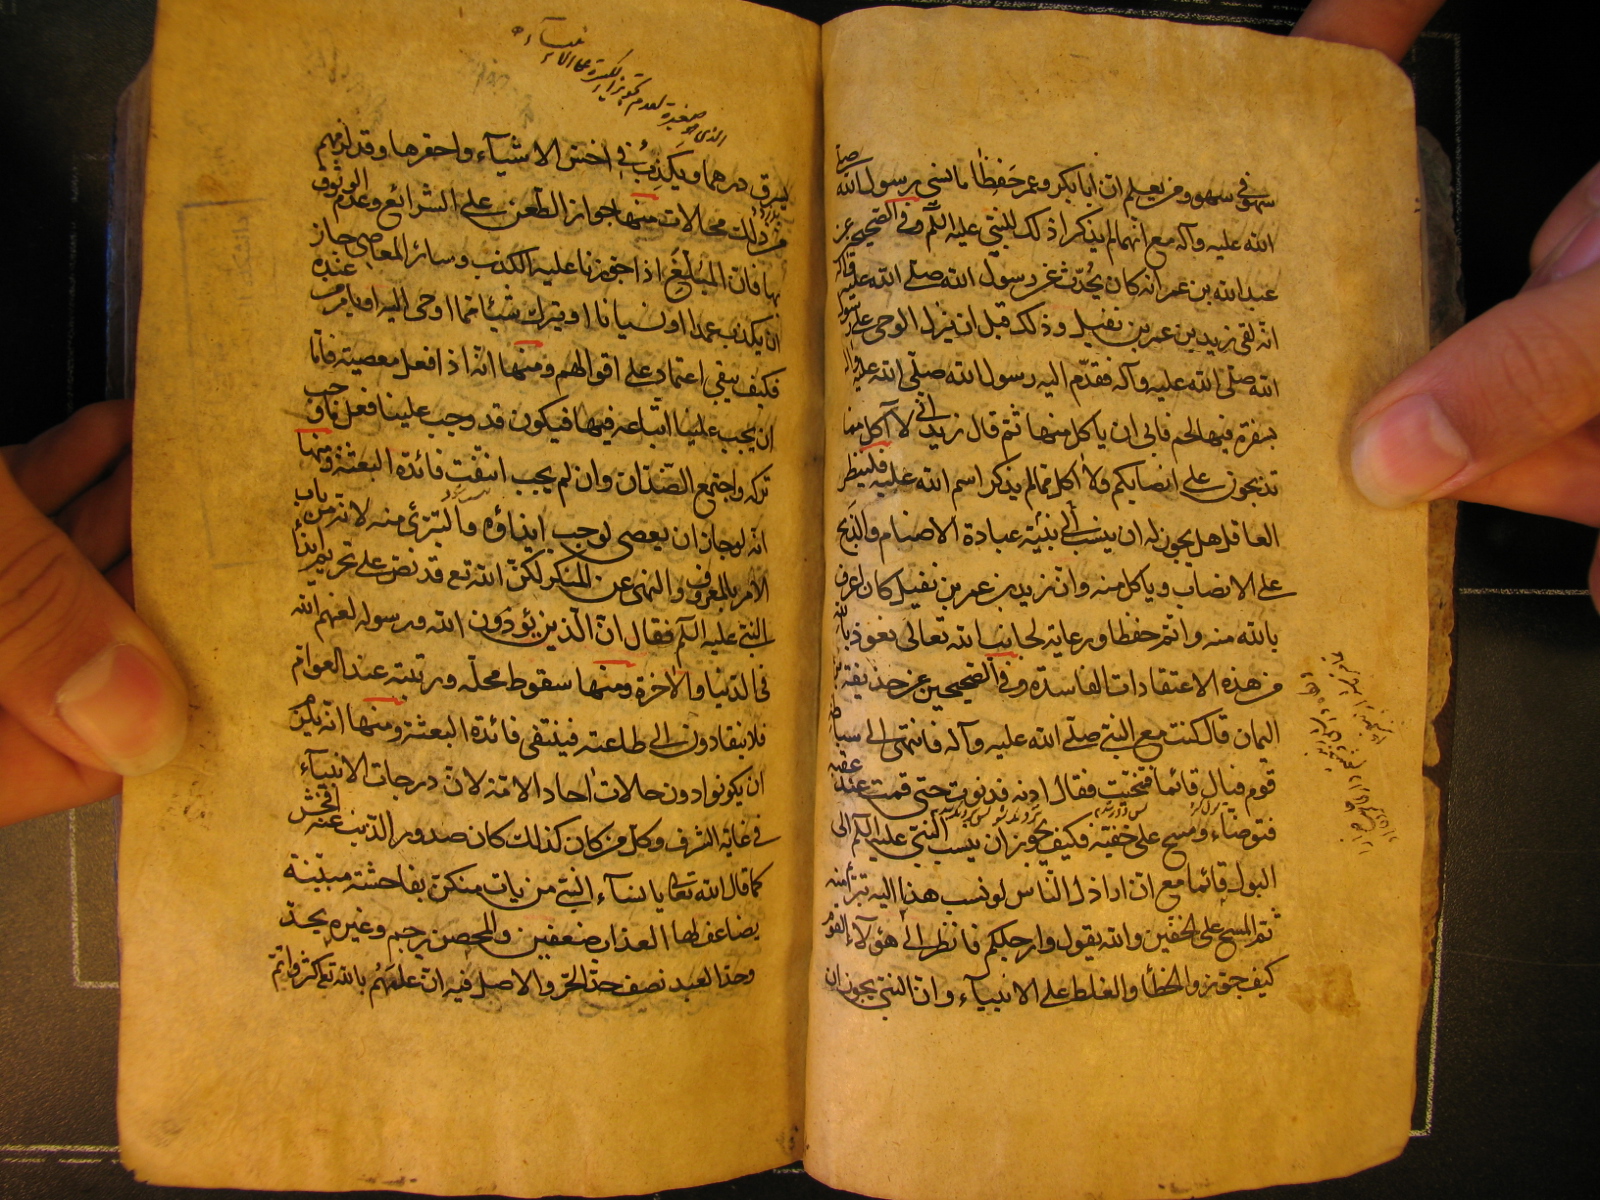 سهوفي سهو ومن يعلم ان ابا بكر وعمر حفظا ما نسي رسول الله صلى
الله عليه وآله مع انهما لم يذكرا ذلك للنبي عليه السلم وفي الصحيح عن
عبد الله بن عمر انه كان يحدث عن رسول الله صلى الله عليه وآله
انه لقي زيد بن عمر بن نفيل وذلك قبل ان ينزل الوحي على رسول
الله صلى الله عليه وآله فقدم اليه رسول الله صلى الله عليه وآله
سفرة فيها لحم فابى ان ياكل منها ثم قال زيد اني لا آكل مما
تذبحون على انصابكم ولا آكل مما لم يذكر اسم الله عليه فلينظر
العاقل هل يجوز له ان ينسب الى نبيه عبادة الاصنام والذبح
على الانصاب وياكل منه وان زيد بن عمر بن نفيل كان اعرف
بالله منه واتم حفظا ورعاية لجانب الله تعالى نعوذ بالله
من هذه الاعتقادات الفاسدة وفي الصحيحين عن حذيفة بن
اليمان قال كنت مع النبي صلى الله عليه وآله فانتهى الى سباطة
قوم فبال قائما فتنحيت فقال ادنه فدنوت حتى قمت عند عقبه
فتوضاء ومسح على خفيه فكيف يجوز ان ينسب النبي عليه السلم الى
البول قائما مع ان اراذل الناس لو نسب هذا اليه تبرأ منه
ثم المسح على الخفين والله يقول وارجلكم فانظر الى هؤلاء القوم
كيف جوزوا الخطأ والغلط على الانبياء وان النبي يجوز ان
الذي هو صغيرة لعدم تجويز الكبيرة على الانبياء
يسرق درهما ويكذب في اخس الاشياء واحقرها وقد لزمهم
من ذلك محالات منها جواز الطعن على الشرائع وعدم الوثوق
بها فان المبلغ اذا جوزنا عليه الكذب وسائر المعاصي جاز
ان يكذب عمدا او نسيانا او يترك شيئا مما اوحى اليه او يامر من عنده
فكيف يبقى اعتماد على اقوالهم ومنها انه اذا فعل معصية فاما
ان يجب علينا اتباعه فيها فيكون قد وجب علينا فعل ما وجب
تركه واجتمع الضدان وان لم يجب انتفت فائدة البعثة ومنها
انه لو جاز ان يعصي لوجب ايذاؤه والتبري منه لانه من باب
الامر بالمعروف والنهي عن المنكر لكن الله تع قد نص على تحريم ايذاء
النبي عليه السلم فقال ان الذين يؤذون الله ورسوله لعنهم الله
في الدنيا والاخرة ومنها سقوط محله ورتبته عند العوام
فلا ينقادون الى طاعته فينتفى فائدة البعثة ومنها انه يلزم
ان يكونوا دون حالات احاد الامة لان درجات الانبياء
في غاية الشرف وكل من كان كذلك كان صدور الذنب عنه افحش
كما قال الله تعالى يا نساء النبي من يات منكن بفاحشة مبينة
يضاعف لها العذاب ضعفين والمحصن يرجم وغيره يحد
وحد العبد نصف حد الحر والاصل فيه ان علمهم بالله تع اكثر واتم